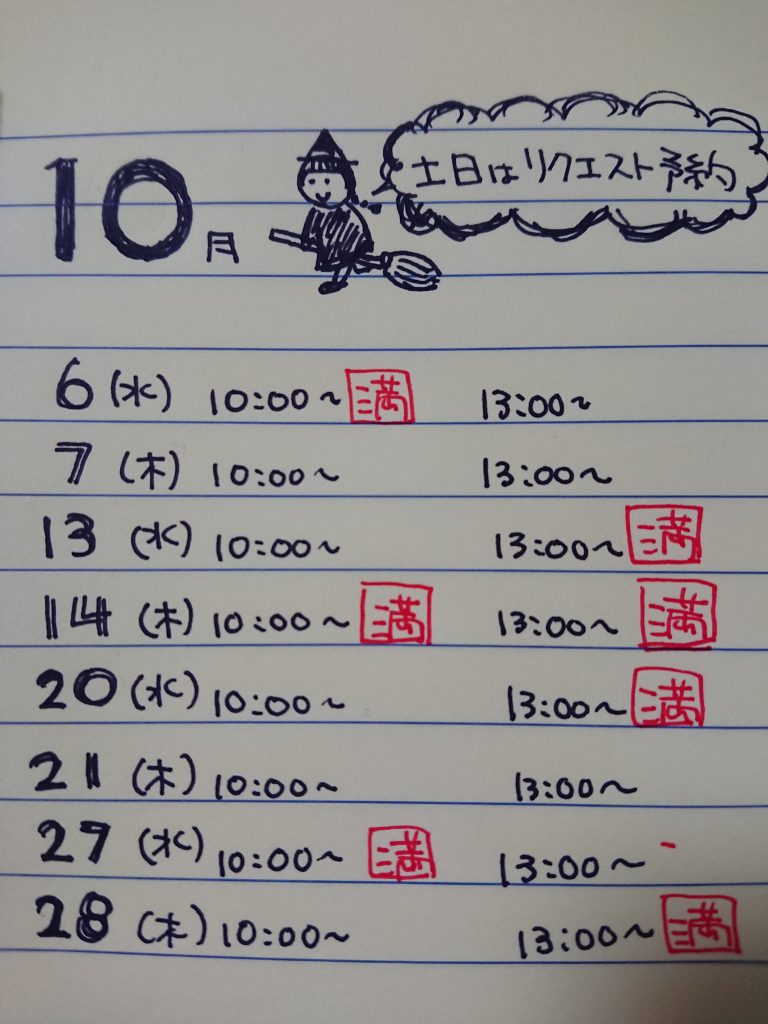 10月
土日はリクエスト予約
6(水) 10:00~ 満 13:00~
7(木) 10:00~ 13:00~
13(水) 10:00~ 13:00~ 満
14(木) 10:00~ 満 13:00~ 満
20(水) 10:00~ 13:00~ 満
21(木) 10:00~ 13:00~
27(水) 10:00~ 満 13:00~
28(木) 10:00~ 13:00~ 満